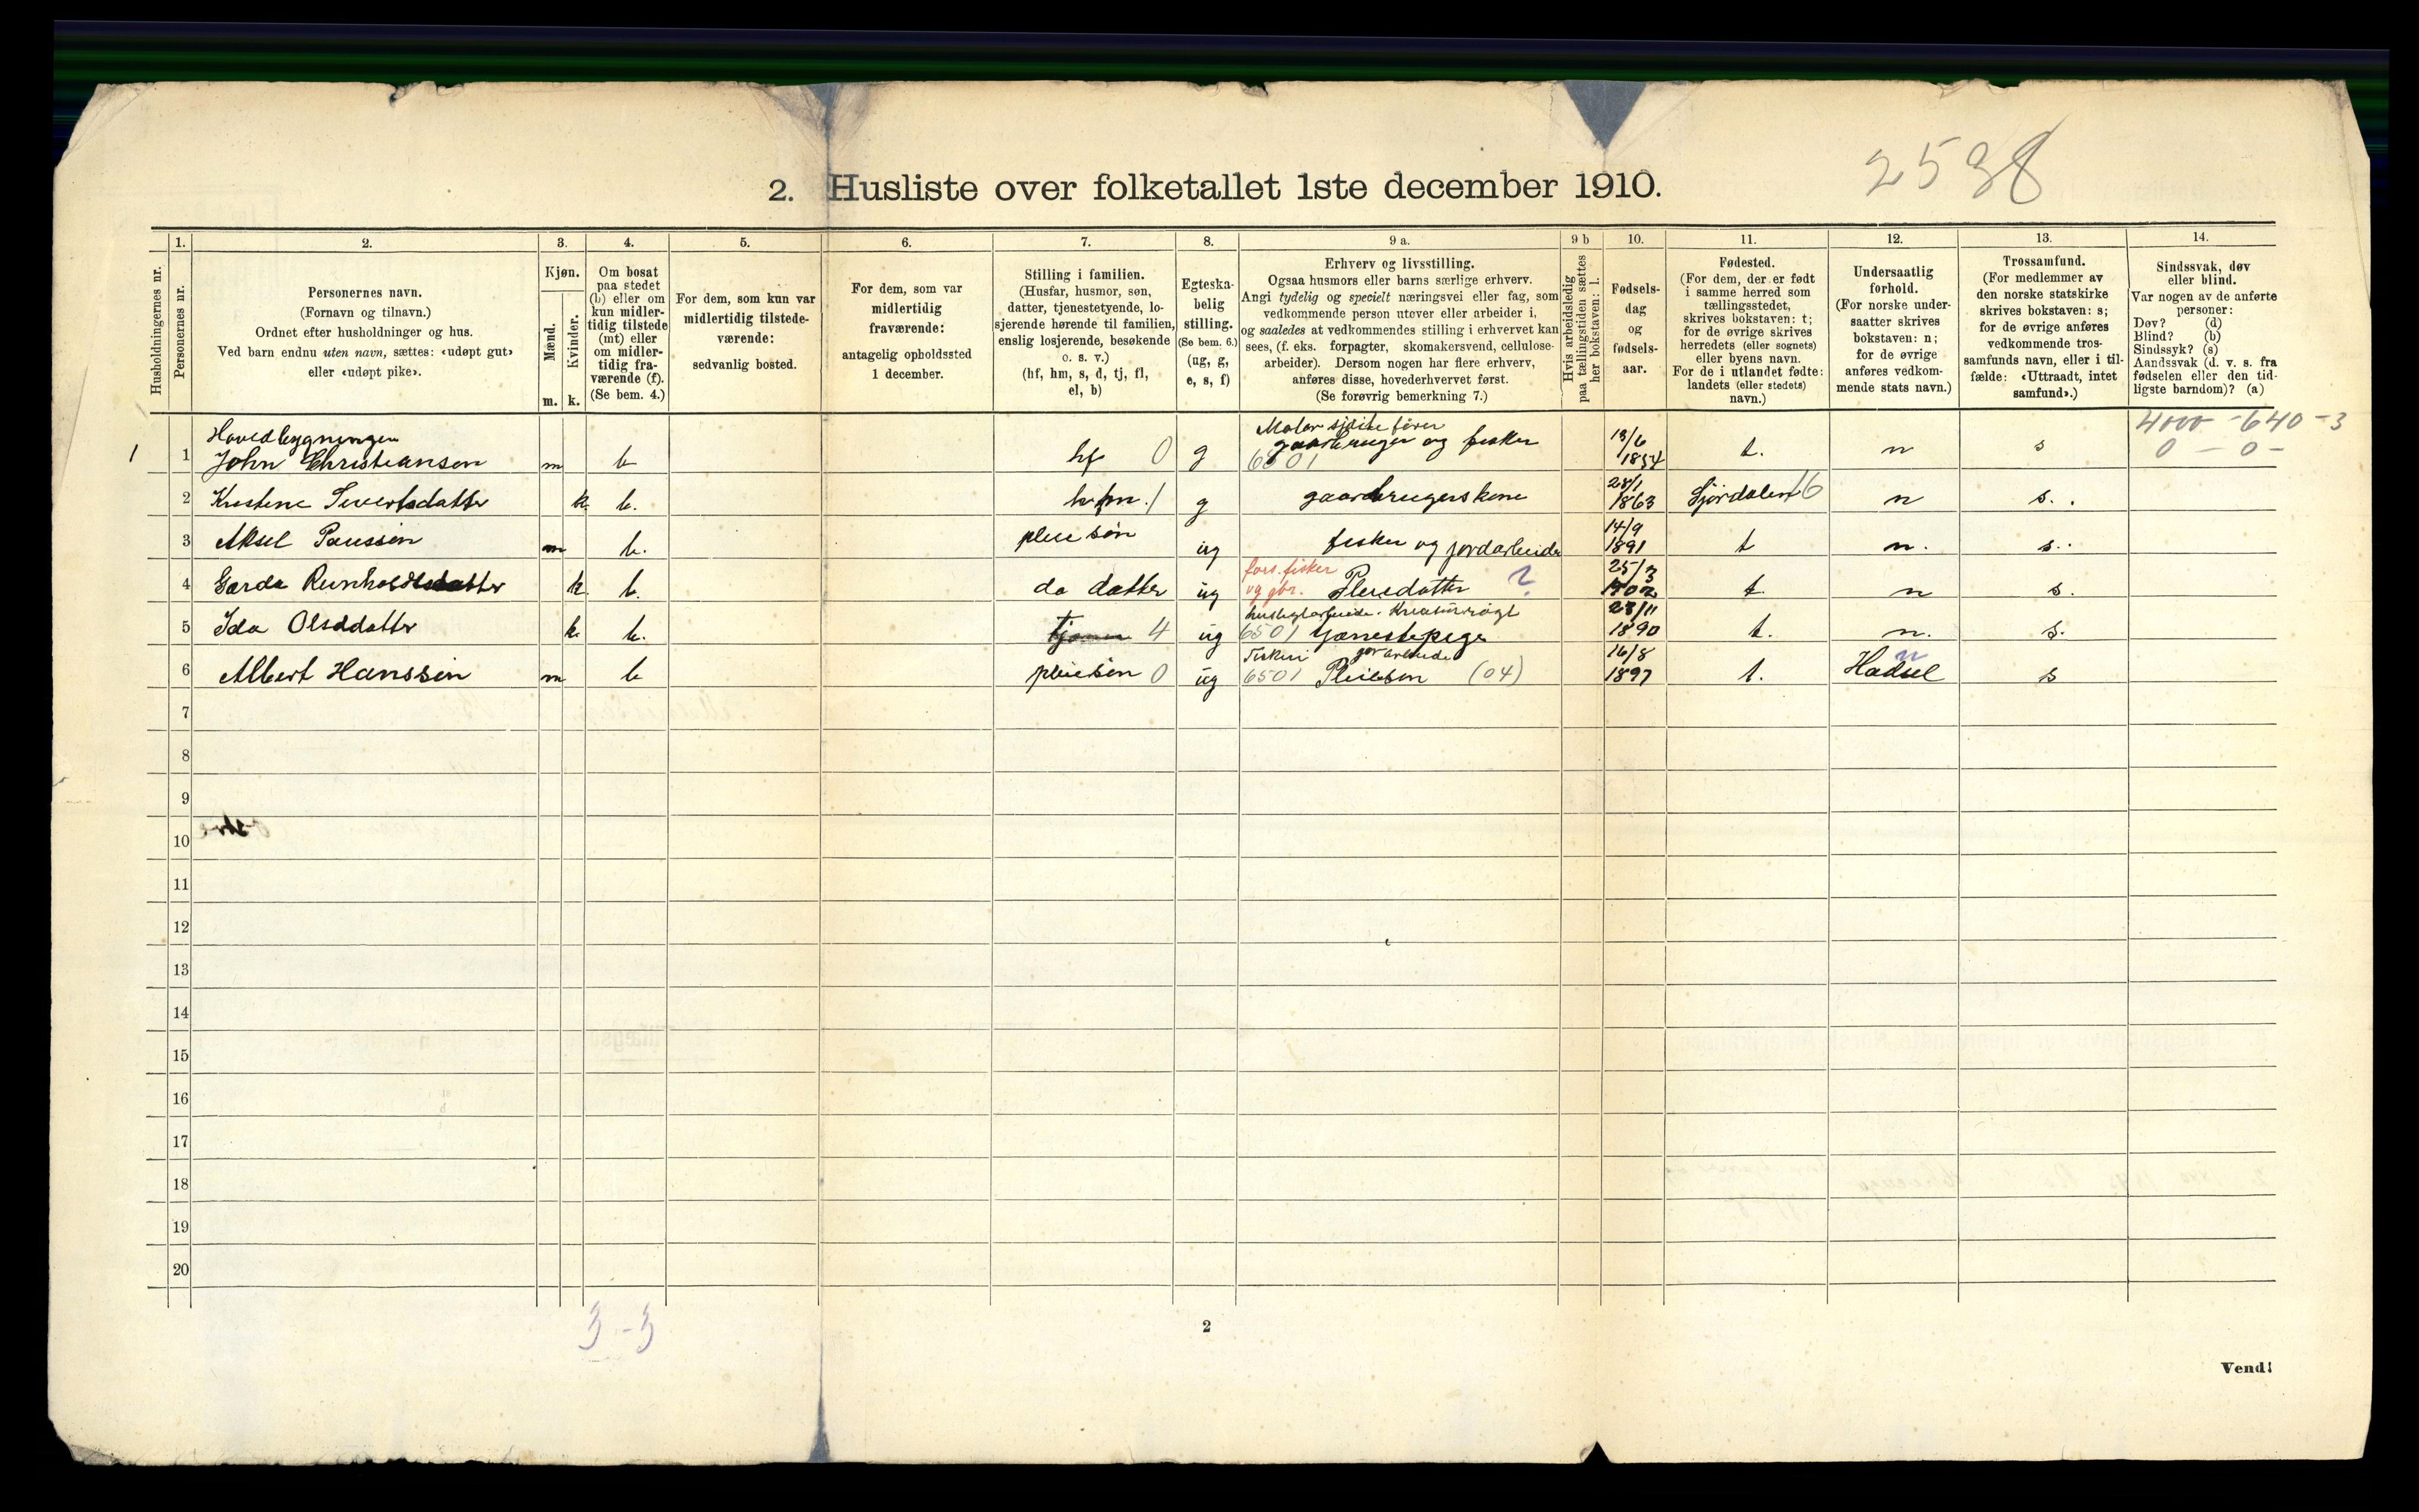 2538
2. Husliste over folketallet 1ste december 1910.
1. 2. 3. 4. 5. 6. 7. 8. 9 a. 9 b 10. 11. 12. 13. 14.
Husholdningernes nr.
Personernes nr.
Personernes navn.
(Fornavn og tilnavn.)
Ordnet efter husholdninger og hus.
Ved barn endnu uten navn, sættes: «udøpt gut»
eller «udøpt pike».
Kjøn.
Mænd.
Kvinder.
m. k.
Om bosat
paa stedet
(b) eller om
kun midler-
tidig tilstede
(mt) eller
om midler-
tidig fra-
værende (f).
(Se bem. 4.)
For dem, som kun var
midlertidig tilstede-
værende:
sedvanlig bosted.
For dem, som var
midlertidig
fraværende:
antagelig opholdssted
1 december.
Stilling i familien.
(Husfar, husmor, søn,
datter, tjenestetyende, lo-
sjerende hørende til familien,
enslig losjerende, besøkende
o. s. v.)
(hf, hm, s, d, tj, fl,
el, b)
Egteska-
belig
stilling.
(Se bem. 6.)
(ug, g,
e, s, f)
Erhverv og livsstilling.
Ogsaa husmors eller barns særlige erhverv.
Angi tydelig og specielt næringsvei eller fag, som
vedkommende person utøver eller arbeider i,
og saaledes at vedkommendes stilling i erhvervet kan
sees, (f. eks. forpagter, skomakersvend, cellulose-
arbeider). Dersom nogen har flere erhverv,
anføres disse, hovederhvervet først.
(Se forøvrig bemerkning 7.)
Hvis arbeidsledig
paa tællingstiden sættes
her bokstaven: l.
Fødsels-
dag
og
fødsels-
aar.
Fødested.
(For dem, der er født
i samme herred som
tællingsstedet,
skrives bokstaven: t;
for de øvrige skrives
herredets (eller sognets)
eller byens navn.
For de i utlandet fødte:
landets (eller stedets)
navn.)
Undersaatlig
forhold.
(For norske under-
saatter skrives
bokstaven: n;
for de øvrige
anføres vedkom-
mende stats navn.)
Trossamfund.
(For medlemmer av
den norske statskirke
skrives bokstaven: s;
for de øvrige anføres
vedkommende tros-
samfunds navn, eller i til-
fælde: «Uttraadt, intet
samfund».)
Sindssvak, døv
eller blind.
Var nogen av de anførte
personer:
Døv? (d)
Blind? (b)
Sindssyk? (s)
Aandssvak (d. v. s. fra
fødselen eller den tid-
ligste barndom)? (a)
Hovedbygningen
4000 - 640 - 3
1 1 John Christiansen m b hf 0 g gaardbruger og fisker 6501 13/6 1854 t. n s 0 - 0 -
2 Kristene Sivertsdatter k b. hm. 1 g gaardbrugerskone 28/1 1863 16 n s.
3 Aksel m b. pleie søn ug fisker og jordarbeider 14/9 1891 t n. s.
fors. fisker
4 k b. do datter ug og gbr. Pleiedatter ? 25/3 1902 t. n s.
5 Ida Olsdatter k. b. 4 ug 6501 28/11 1890 t. n. s.
Fiskeri
6 Albert Hanssen m b pleiesøn 0 ug 6501 Pleiesøn (04) 16/8 1897 t. n Hadsel s
7
8
9
10
11
12
13
14
15
16
17
18
19
20
3 - 3
2
Vend!